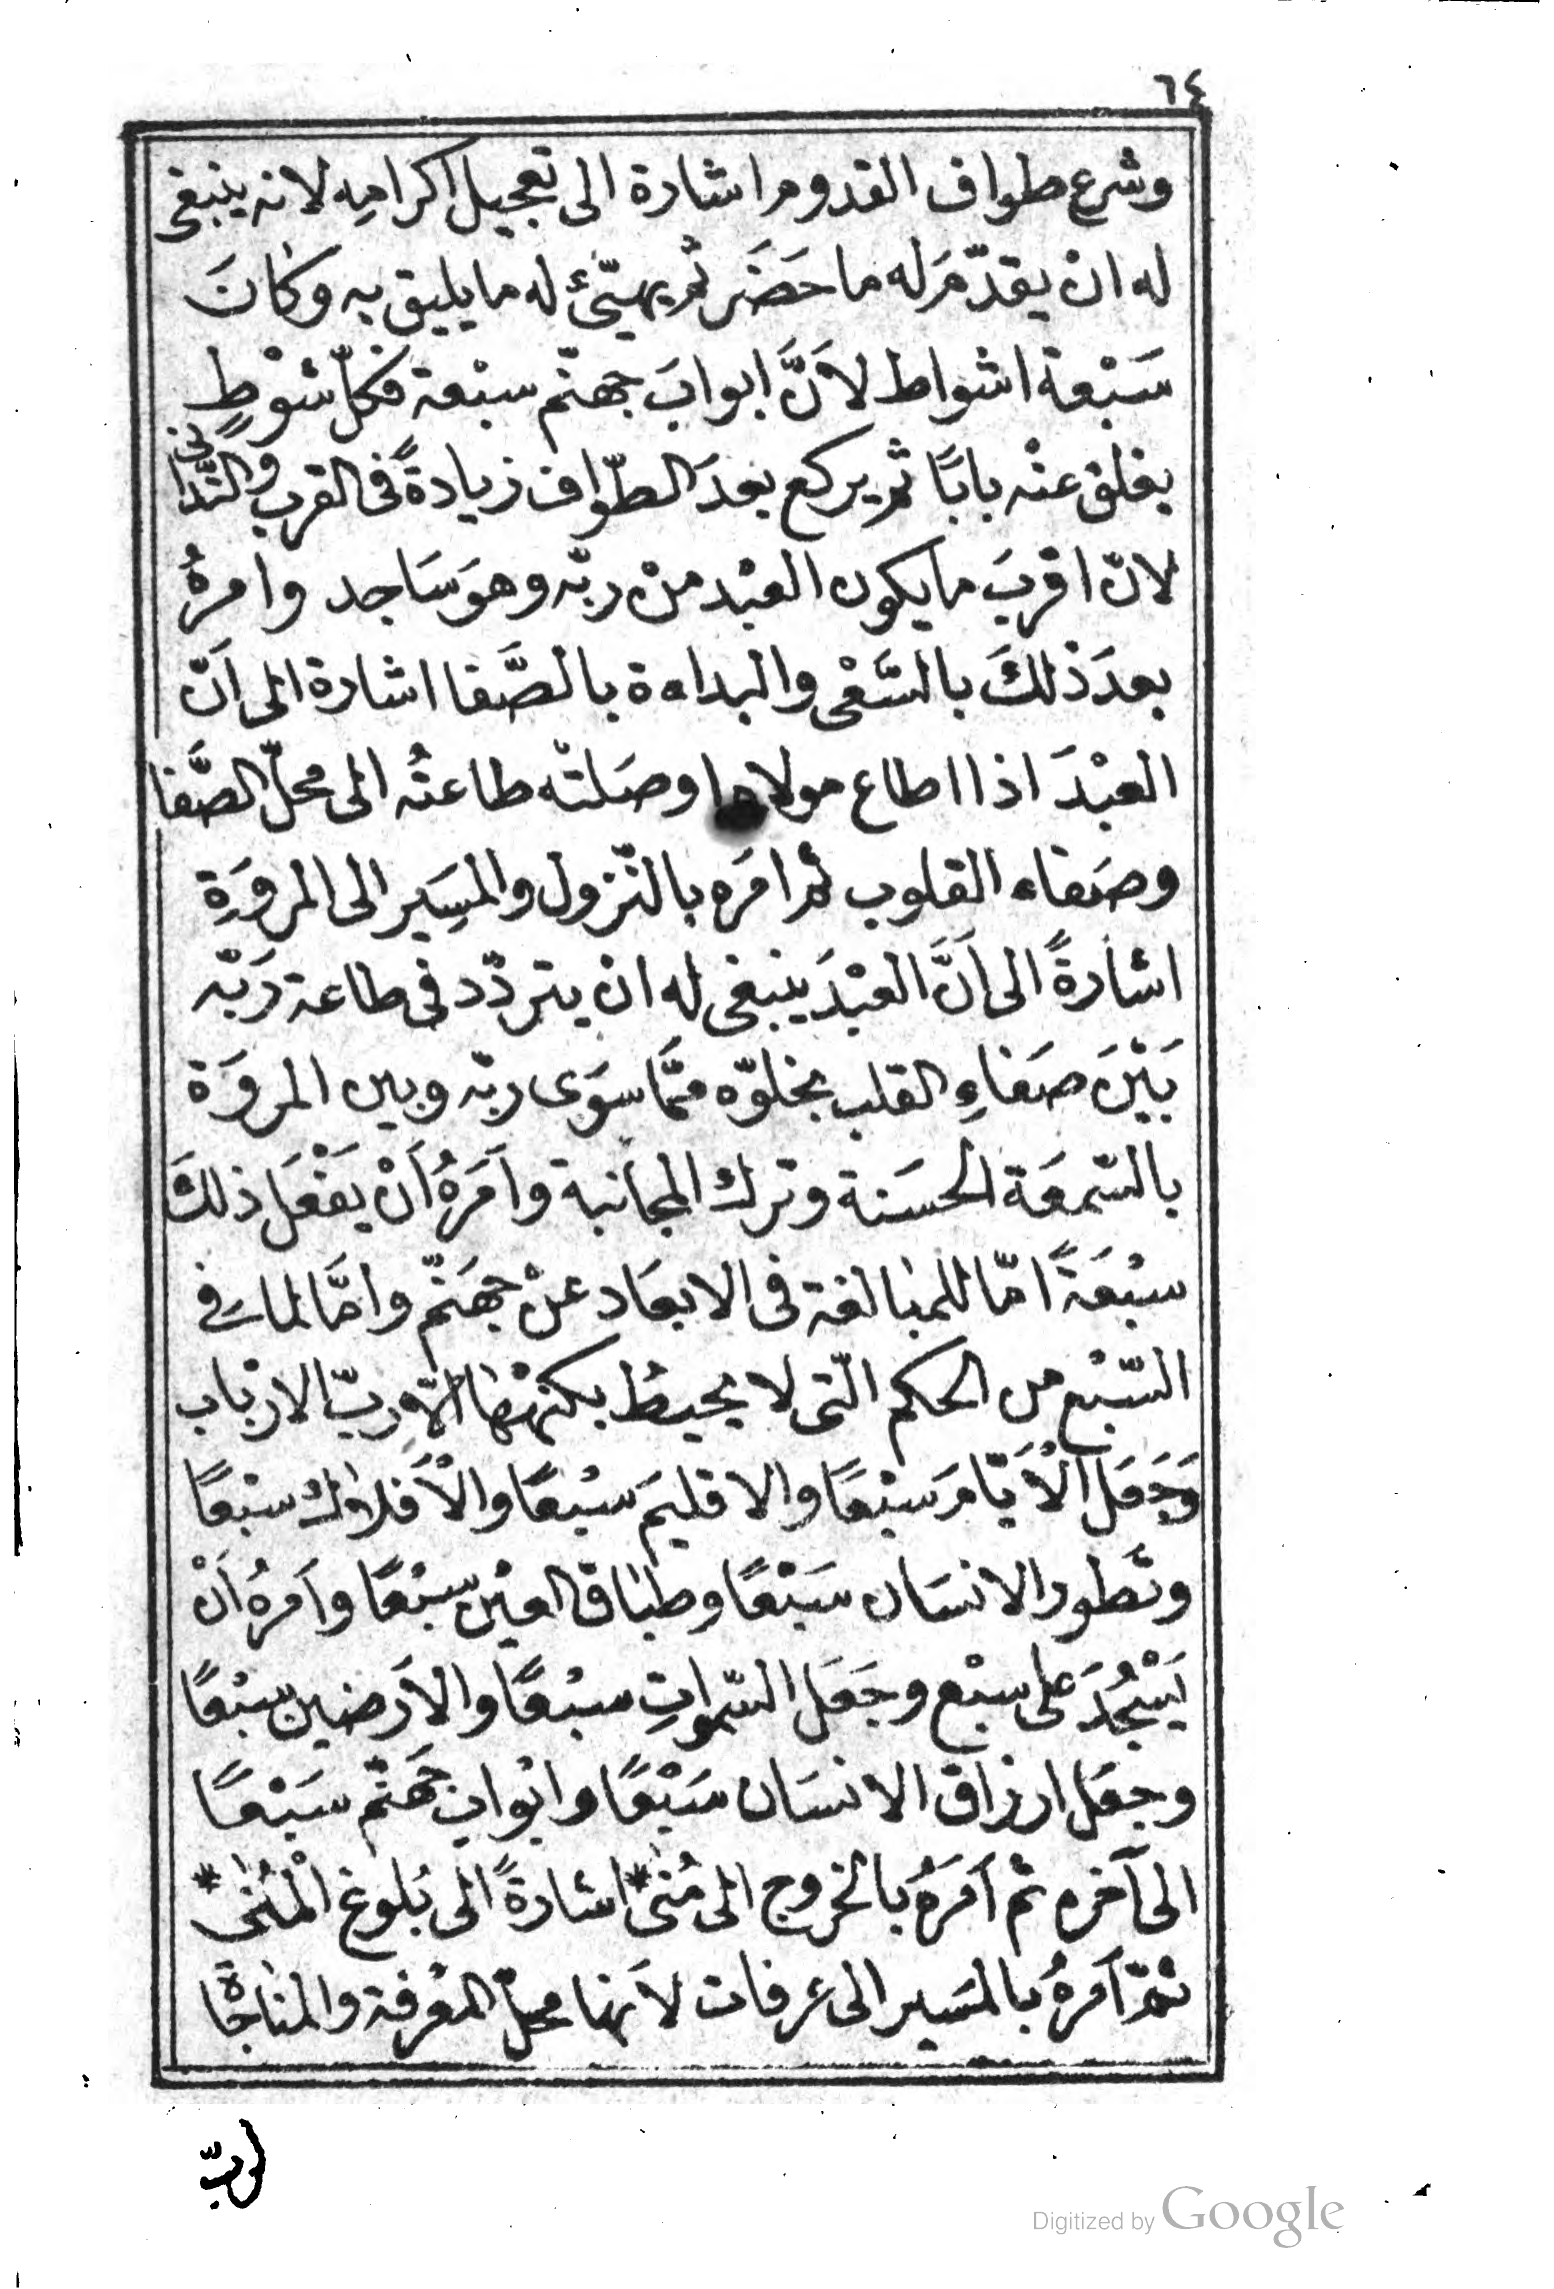 ٦٤
وشرع طواف القدوم اشارة الى تعجيل اكرامه لانه ينبغى
له ان يقدّمَ له ما حَضَر ثم يهيّئ له ما يليق به وكانَ
سَبْعة اشواط لاَنَّ ابوابَ جهنّم سبْعة فكلّ شوْطٍ
يغلق عنْه بابًا ثم يركع بعدَ الطّواف زيادةً فى القرب والتَّدانى
لانّ اقربَ ما يكون العبْد منْ ربّه وهوَ سَاجد وامرهُ
بعدَ ذلكَ بالسَّعْى والبداءة بالصَّفا اشارة الى اَنّ
العبْدَ اذا اطاع مولاه اوصَلتْه طاعتُه الى محلّ الصَّفا
وصَفاء القلوب ثم امَره بالنّزول والمسِير الى المروَةِ
اشارةً الى اَنَّ العبْدَ ينبغى له ان يتردّد فى طاعة رَبّه
بَيْنَ صَفاءِ القلب بخلوّه ممَّا سوَى ربّه وبين المروَة
بالسّمعَة الحسَنة وترك المجانبة واَمَرهُ اَنْ يَفْعَل ذلكَ
سبْعَةً امّا للمبالغة فى الابعَاد عنْ جهَنّم وامَّا لما فى
السّبْع من الحكم الّتى لا يحيطُ بكنهْها الاّ ربّ الارْباب
وَجَعَل الْاَيّامَ سبْعًا والاقليمَ سبْعًا والْاَفلاك سبْعًا
وتَطور الانسَان سَبْعًا وطباق العيْن سبْعًا واَمرهُ اَنْ
يَسْجُدَ على سبْع وجَعَل السّمواتِ سبْعًا والاَرضين سبْعًا
وجعَل ارزاق الانسَان سَبْعًا وابْواب جَهنّم سَبْعًا
الى آخره ثم اَمَرهُ بالخروج الى مُنىً* اشارةً الى بُلوغ الْمُنىٰ*
ثمّ اَمرهُ بالمسَير الى عرفات لاَنها محلّ المعْرفة والمناجاة
لربّ
Digitized by Google